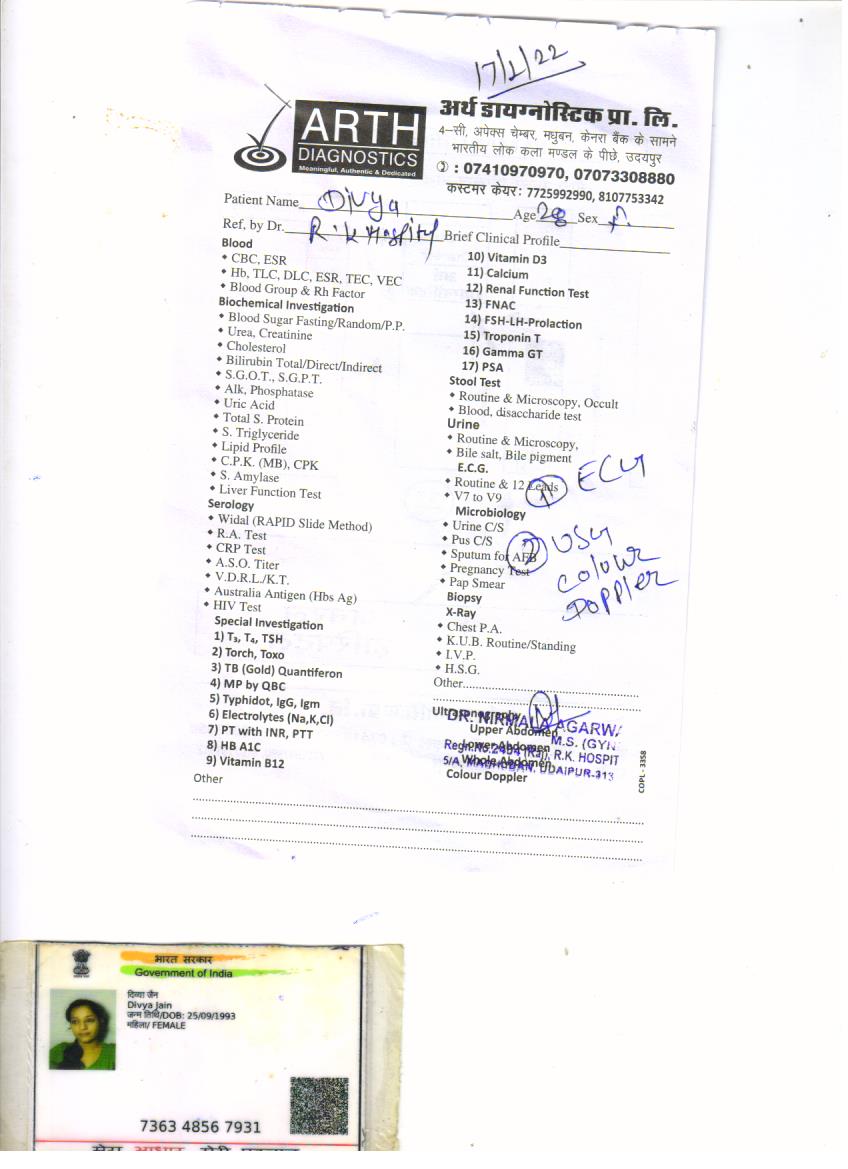 17/2/22
ARTH
DIAGNOSTICS
Meaningful, Authentic & Dedicated
अर्थ डायग्नोस्टिक प्रा. लि.
4-सी, अपेक्स चेम्बर, मधुबन, केनरा बैंक के सामने
भारतीय लोक कला मण्डल के पीछे, उदयपुर
: 07410970970, 07073308880
कस्टमर केयर: 7725992990, 8107753342
Patient Name Divya Age 28 Sex F
Ref. by Dr. R.K Hospital Brief Clinical Profile
Blood
CBC, ESR
Hb, TLC, DLC, ESR, TEC, VEC
Blood Group & Rh Factor
Biochemical Investigation
Blood Sugar Fasting/Random/P.P.
Urea, Creatinine
Cholesterol
Bilirubin Total/Direct/Indirect
S.G.O.T., S.G.P.T.
Alk, Phosphatase
Uric Acid
Total S. Protein
S. Triglyceride
Lipid Profile
C.P.K. (MB), CPK
S. Amylase
Liver Function Test
Serology
Widal (RAPID Slide Method)
R.A. Test
CRP Test
A.S.O. Titer
V.D.R.L./K.T.
Australia Antigen (Hbs Ag)
HIV Test
Special Investigation
1) T₃, T₄, TSH
2) Torch, Toxo
3) TB (Gold) Quantiferon
4) MP by QBC
5) Typhidot, IgG, Igm
6) Electrolytes (Na,K,Cl)
7) PT with INR, PTT
8) HB A1C
9) Vitamin B12
Other
10) Vitamin D3
11) Calcium
12) Renal Function Test
13) FNAC
14) FSH-LH-Prolaction
15) Troponin T
16) Gamma GT
17) PSA
Stool Test
Routine & Microscopy, Occult
Blood, disaccharide test
Urine
Routine & Microscopy,
Bile salt, Bile pigment
E.C.G.
Routine & 12 Leads
V7 to V9
1 ECG
Microbiology
Urine C/S
Pus C/S
Sputum for AFB
Pregnancy Test
Pap Smear
2 USG
Colour
Doppler
Biopsy
X-Ray
Chest P.A.
K.U.B. Routine/Standing
I.V.P.
H.S.G.
Other
Ultrasonography
Upper Abdomen
Lower Abdomen
Whole Abdomen
Colour Doppler
DR. NIRMALA AGARWA
M.S. (GYN
Regn.No.2494 (Raj), R.K. HOSPIT
5/A, MADHUBAN, UDAIPUR-313
COPL - 3358
भारत सरकार
Government of India
दिव्या जैन
Divya Jain
जन्म तिथि/DOB: 25/09/1993
महिला/ FEMALE
7363 4856 7931